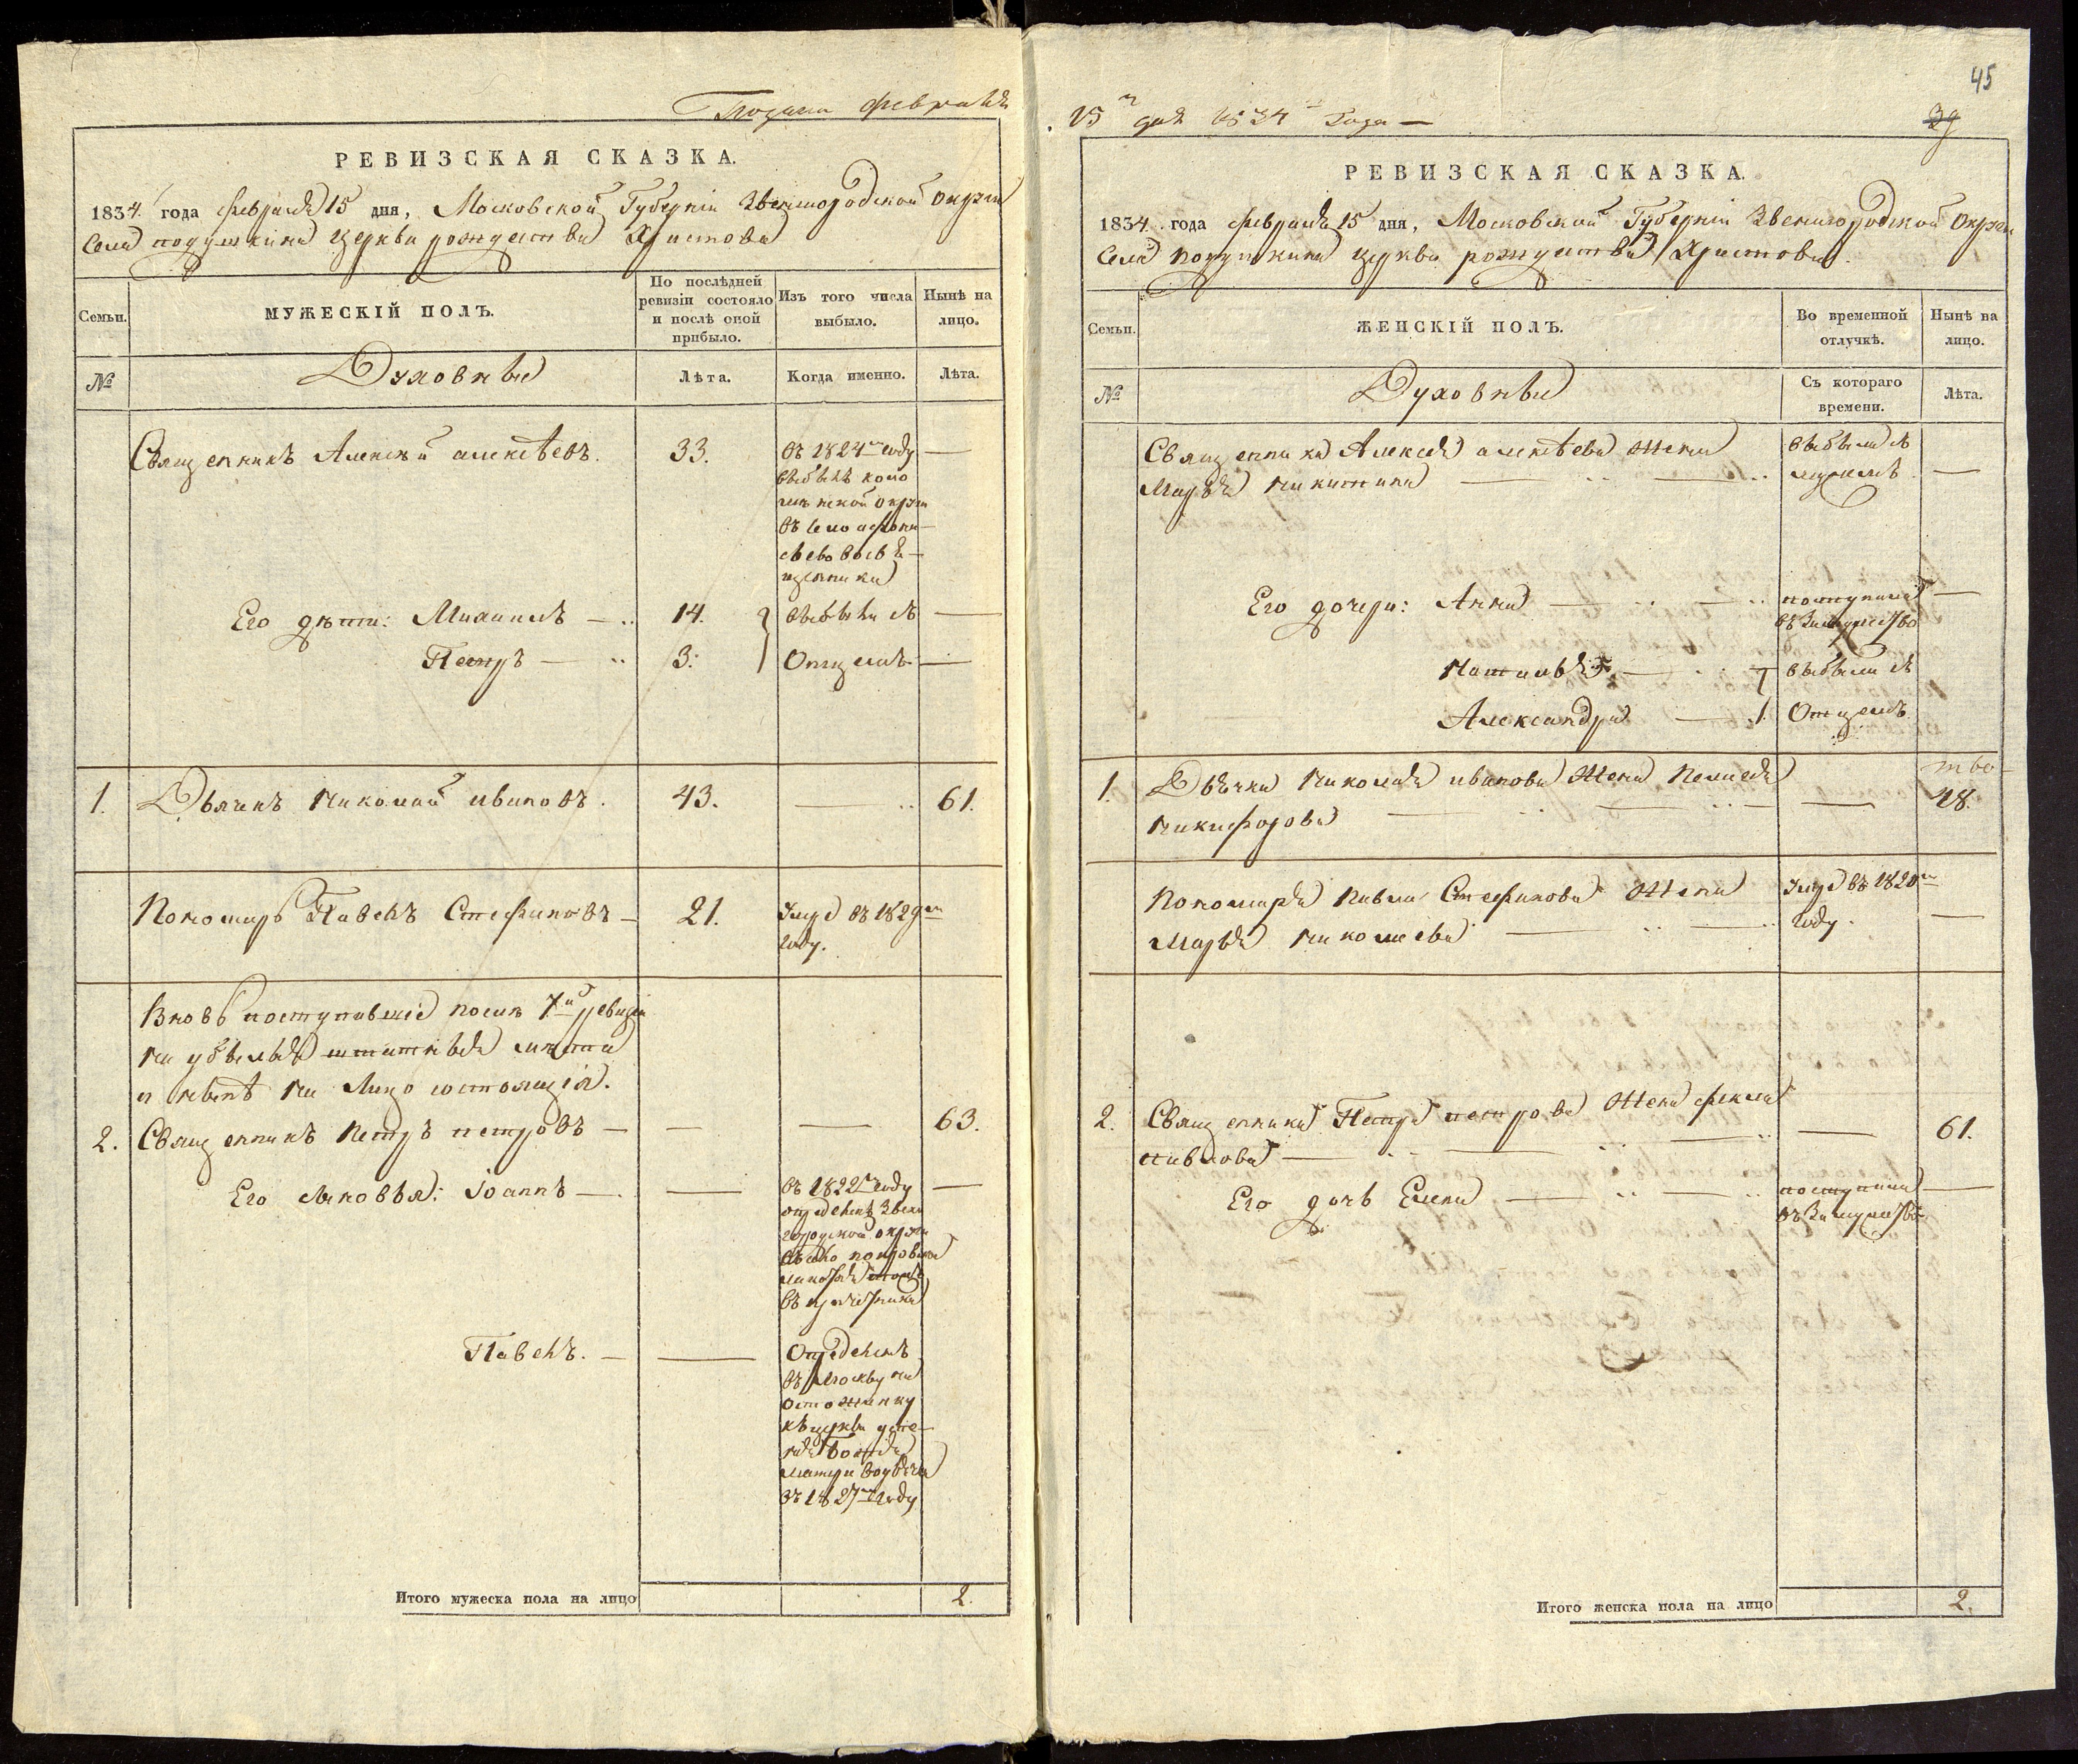 Подана февраля
РЕВИЗСКАЯ СКАЗКА.
1834. года февраля 15 дня, Московской Губерніи Звенигородской Округи
Села подушкина церкви рождества Христова
Семьи.
МУЖЕСКІЙ ПОЛЪ.
По послѣдней
ревизіи состояло
и послѣ оной
прибыло.
Изъ того числа
выбыло.
Нынѣ на
лицо.
№
Духовныя
Лѣта.
Когда именно.
Лѣта.
Священникъ Алексѣй алексѣевъ.
33.
въ 1824м году
выбылъ коло
менской округи
въ село
въ свя-
щенники
Его дѣти: Михаилъ
14.
выбыли съ
Петръ
3.
Отцемъ
1. Дьячикъ Николай ивановъ.
43.
61.
Пономарь Павелъ Стефановъ
21.
Умре въ 1829м
году.
Вновь поступившіе послѣ 7й ревизіи
на убылыя штатныя мѣста
и нынѣ на Лицо состоящія.
2. Священникъ Петръ петровъ
63.
Его сыновья: Іоаннъ
въ 1822м году
опредѣленъ Звени
городской округи
въ село покровское
въ причетника
Павелъ.
Опредѣленъ
въ Москву на
остоженку
къ церкви успе-
нія Божія
матери во дьячка
въ 1827м году
Итого мужеска пола на лицо
2.
45
15го дня 1834го Года
39
РЕВИЗСКАЯ СКАЗКА.
1834. года февраля 15 дня, Московской Губерніи Звенигородской Округи
Села подушкина церкви рождества Христова.
Семьи.
ЖЕНСКІЙ ПОЛЪ.
Во временной
отлучкѣ.
Нынѣ на
лицо.
№
Духовныя
Съ котораго
времени.
Лѣта.
Священника Алексея алексѣева Жена
Марья никитина
выбыла съ
мужемъ
Его дочери: Анна
поступила
въ Замужство
Наталья
выбыли съ
Александра
Отцемъ
1. Дьячка Николая иванова Жена Пелагея
никифорова
48.
Пономаря Павла Стефанова Жена
Марья николаева
Умре въ 1820м
году.
2. Священника Петра петрова Жена фекла
павлова
61.
Его дочь Елена
поступила
въ Замужство
Итого женска пола на лицо
2.